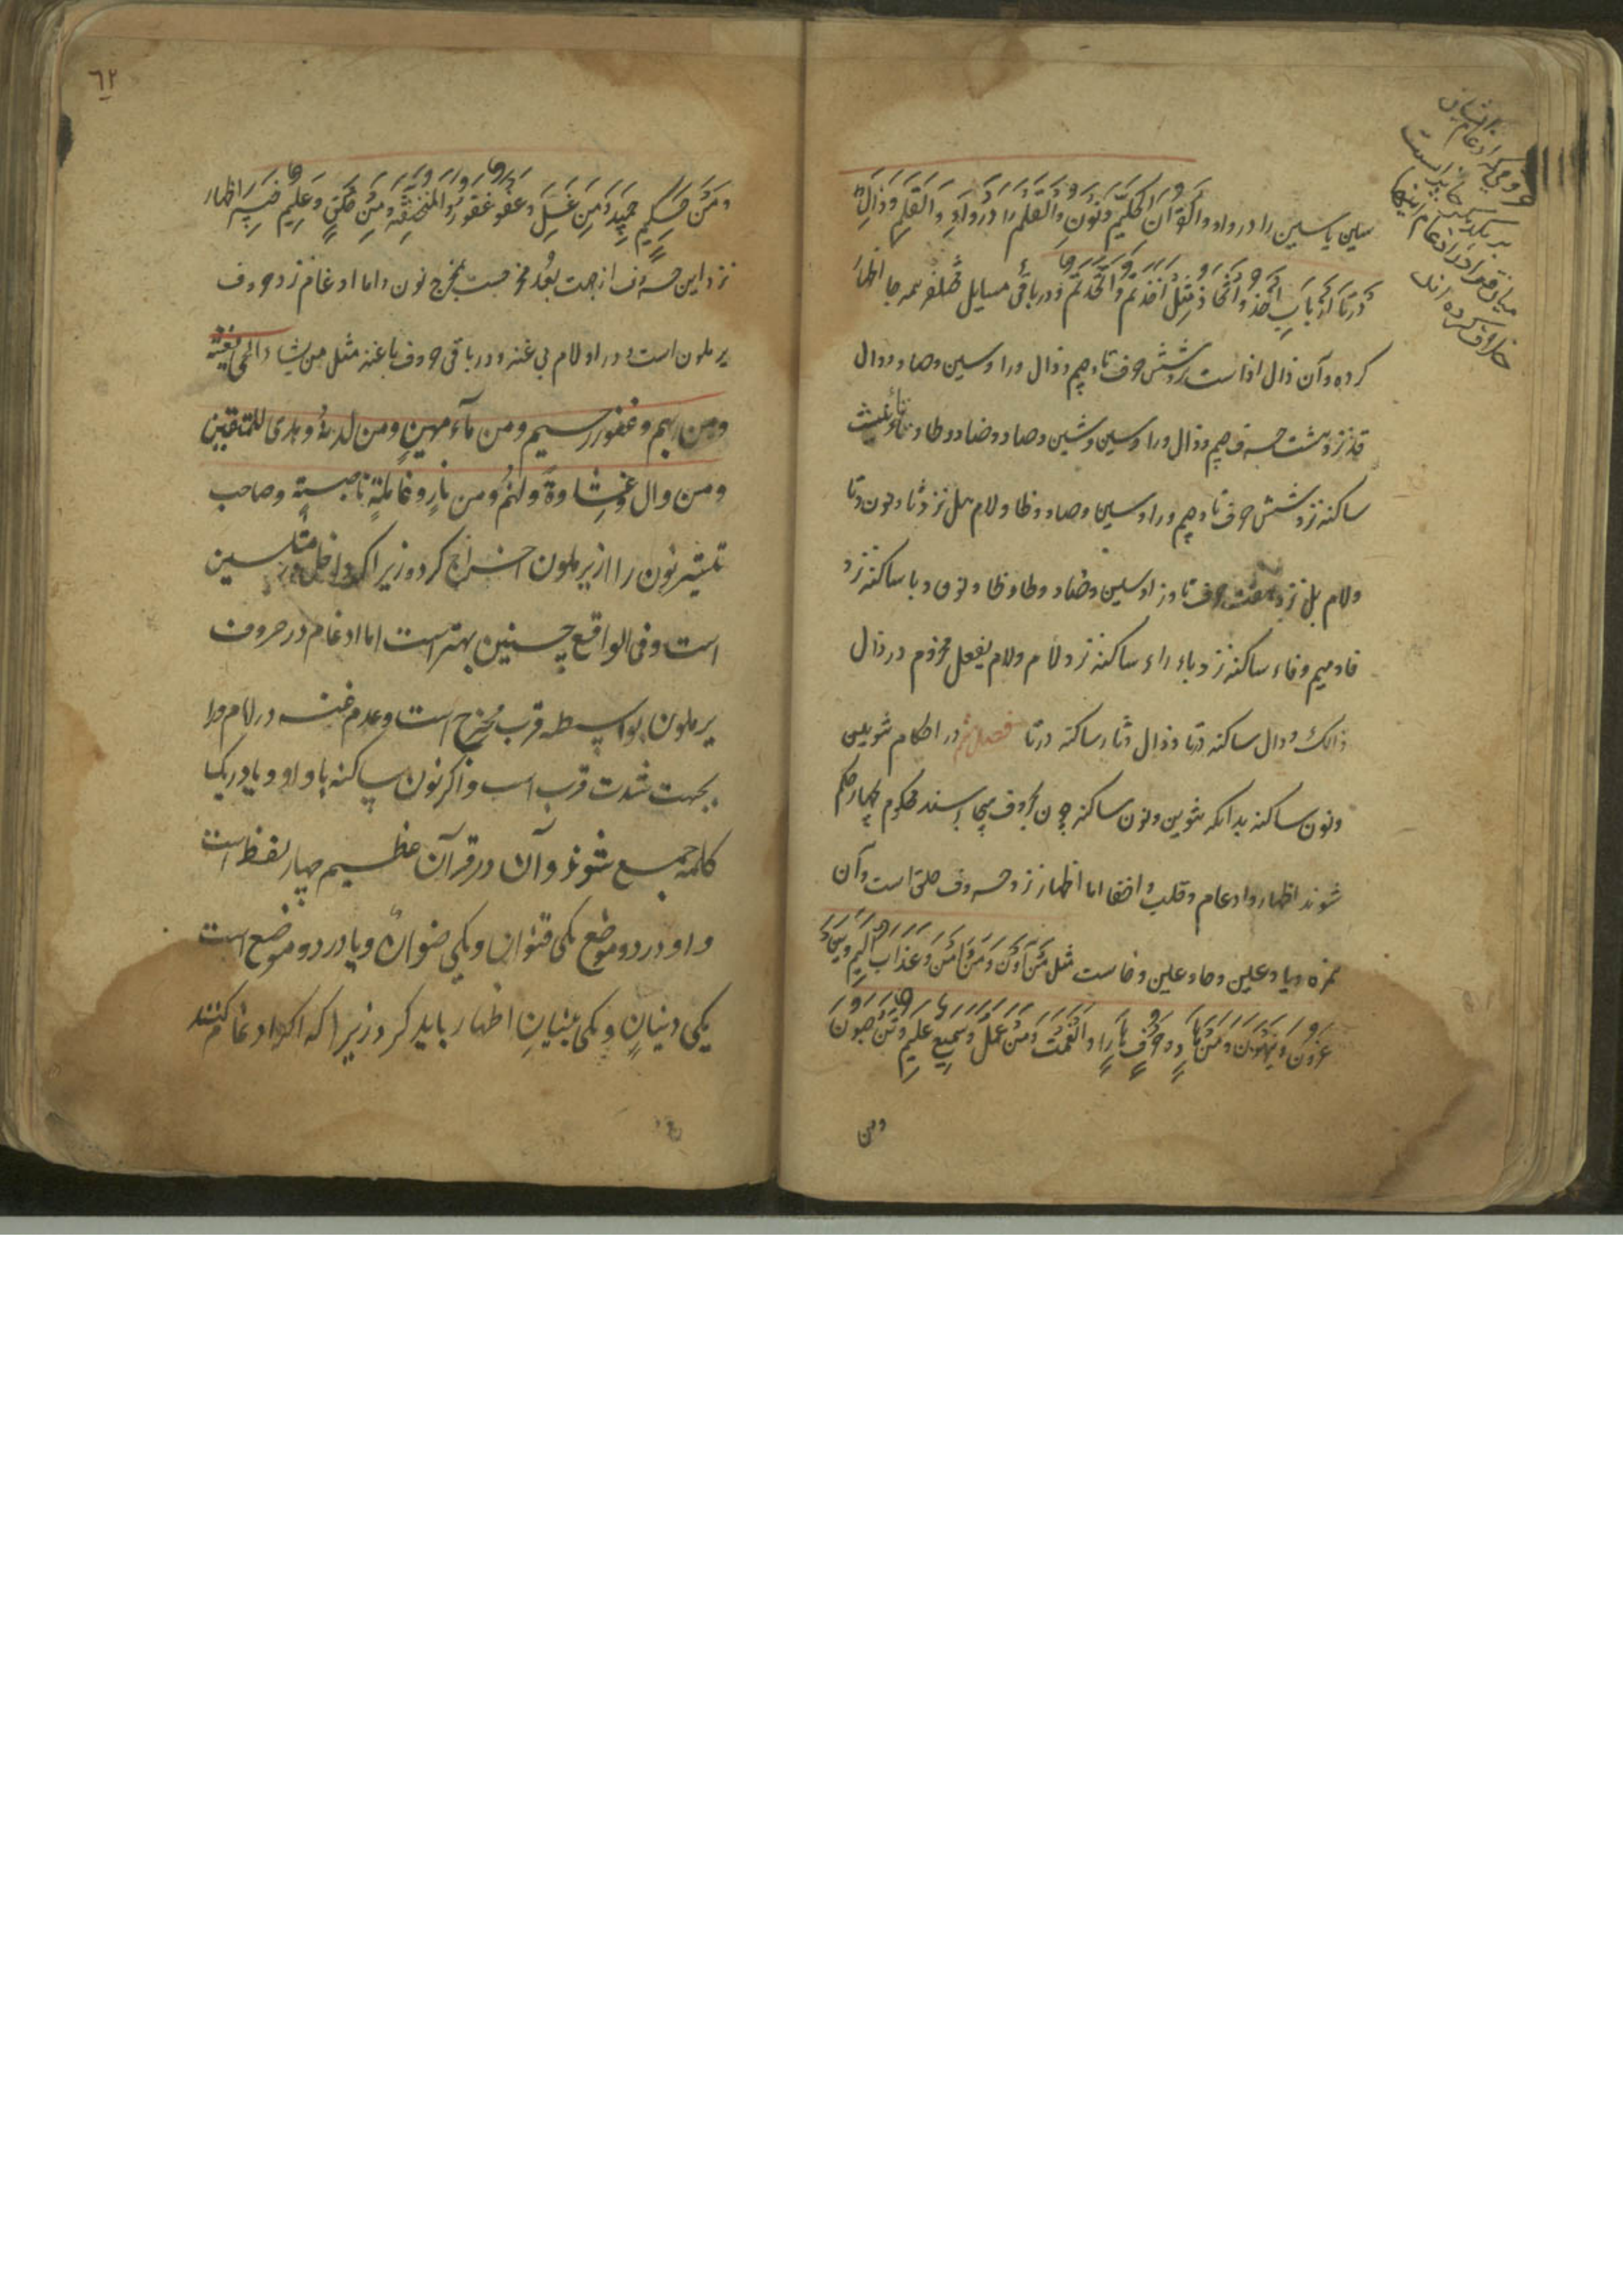 سین یاسین را در واو والقرآن الحکیم ونون والقلم را در واو والقلم وذال
در تا از باب اخذ واتخاذ مثل اخذتم واتخذتم ودر باقی مسایل مختلفه همه جا اظهار
کرده وآن ذال اذاست نزد شش حرف تا وجیم ودال وزا وسین وصاد ودال
قد نزد هشت حرف جیم وذال وزا وسین وشین وصاد وضاد وظا وتاء تأنیث
ساکنه نزد شش حرف ثا وجیم وزا وسین وصاد وظا ولام هل نزد ثا ونون وتا
ولام بل نزد هفت حرف تا وزا وسین وضاد وطا وظا ونون وبا ساکنه نزد
فا ومیم وفاء ساکنه نزد باء راء ساکنه نزد لام ولام یفعل مجزوم در ذال
ذالک ودال ساکنه در ثا وذال وثاء ساکنه در تا فصل در احکام تنوین
ونون ساکنه بدانکه تنوین ونون ساکنه چون بحروف تهجی رسند محکوم بچهار حکم
شوند اظهار وادغام وقلب واخفا اما اظهار نزد حروف حلق است وآن
همزه وها وعین وحا وغین وخاست مثل من آمن وعذاب الیم
وینهون ومن هاد وجرف هار وانعمت ومن عمل وسمیع علیم وتنحتون
ومن
حروفی که ادغام ایشان
در یکدیگر جایز است
میان قراء در ادغام اینها
خلاف کرده اند
٦٢
ومن حکیم حمید ومن غل وعفو غفور والمنخنقه ومن خلق وعلیم خبیر اظهار
نزد این حروف از جهت بعد مخرجست بمخرج نون واما ادغام نزد حروف
یرملون است در را ولام بی غنه ودر باقی حروف با غنه مثل من یشاء
ومن ربهم وغفور رحیم ومن ماء مهین ومن لدنه وهدی للمتقین
ومن وال وغشاوة ولهم ومن نار وعاملة ناصبة وصاحب
تیسیر نون را از یرملون اخراج کرده زیرا که داخل متماثلین
است وفی الواقع چنین بهتر است اما ادغام در حروف
یرملون بواسطه قرب مخرج است وعدم غنه در لام ورا
بجهت شدت قرب است واگر نون ساکنه با واو ویا در یک
کلمه جمع شوند وآن در قرآن عظیم چهار لفظ است
واو در دو موضع یکی قنوان ویکی صنوان ویا در دو موضع است
یکی دنیا ویکی بنیان اظهار باید کرد زیرا که اگر ادغام کنند